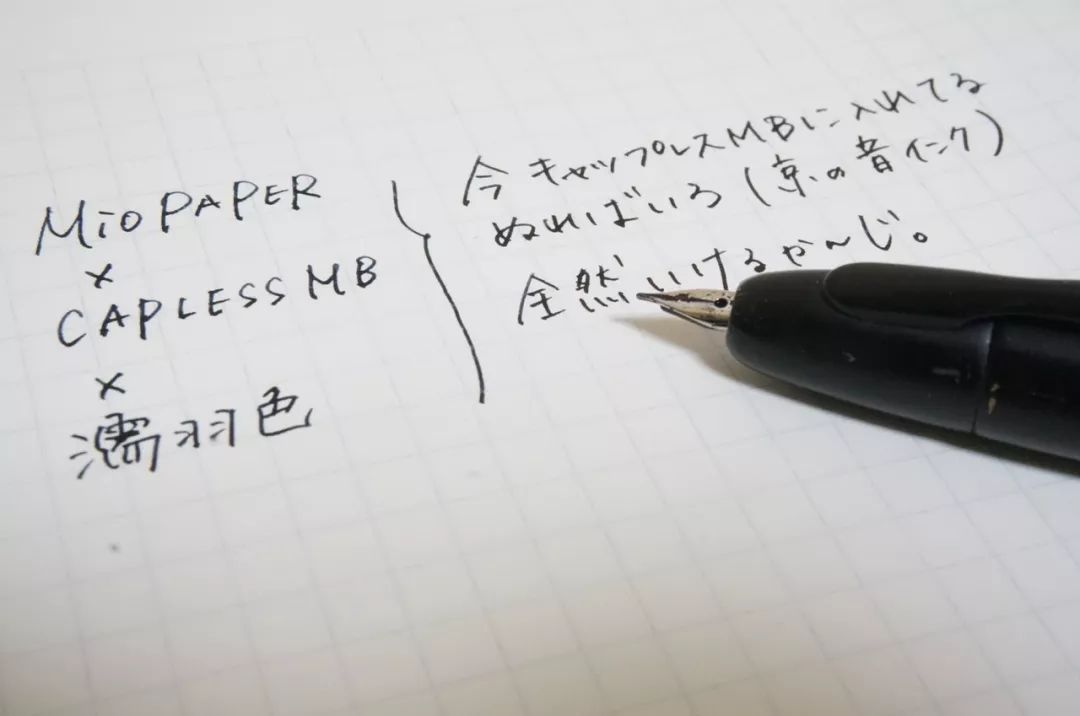 MiO PAPER
×
CAPLESS MB
×
濡羽色
今キャップレスMBに入れてる
ぬればいろ(京の音インク)
全然いけるや〜じ。